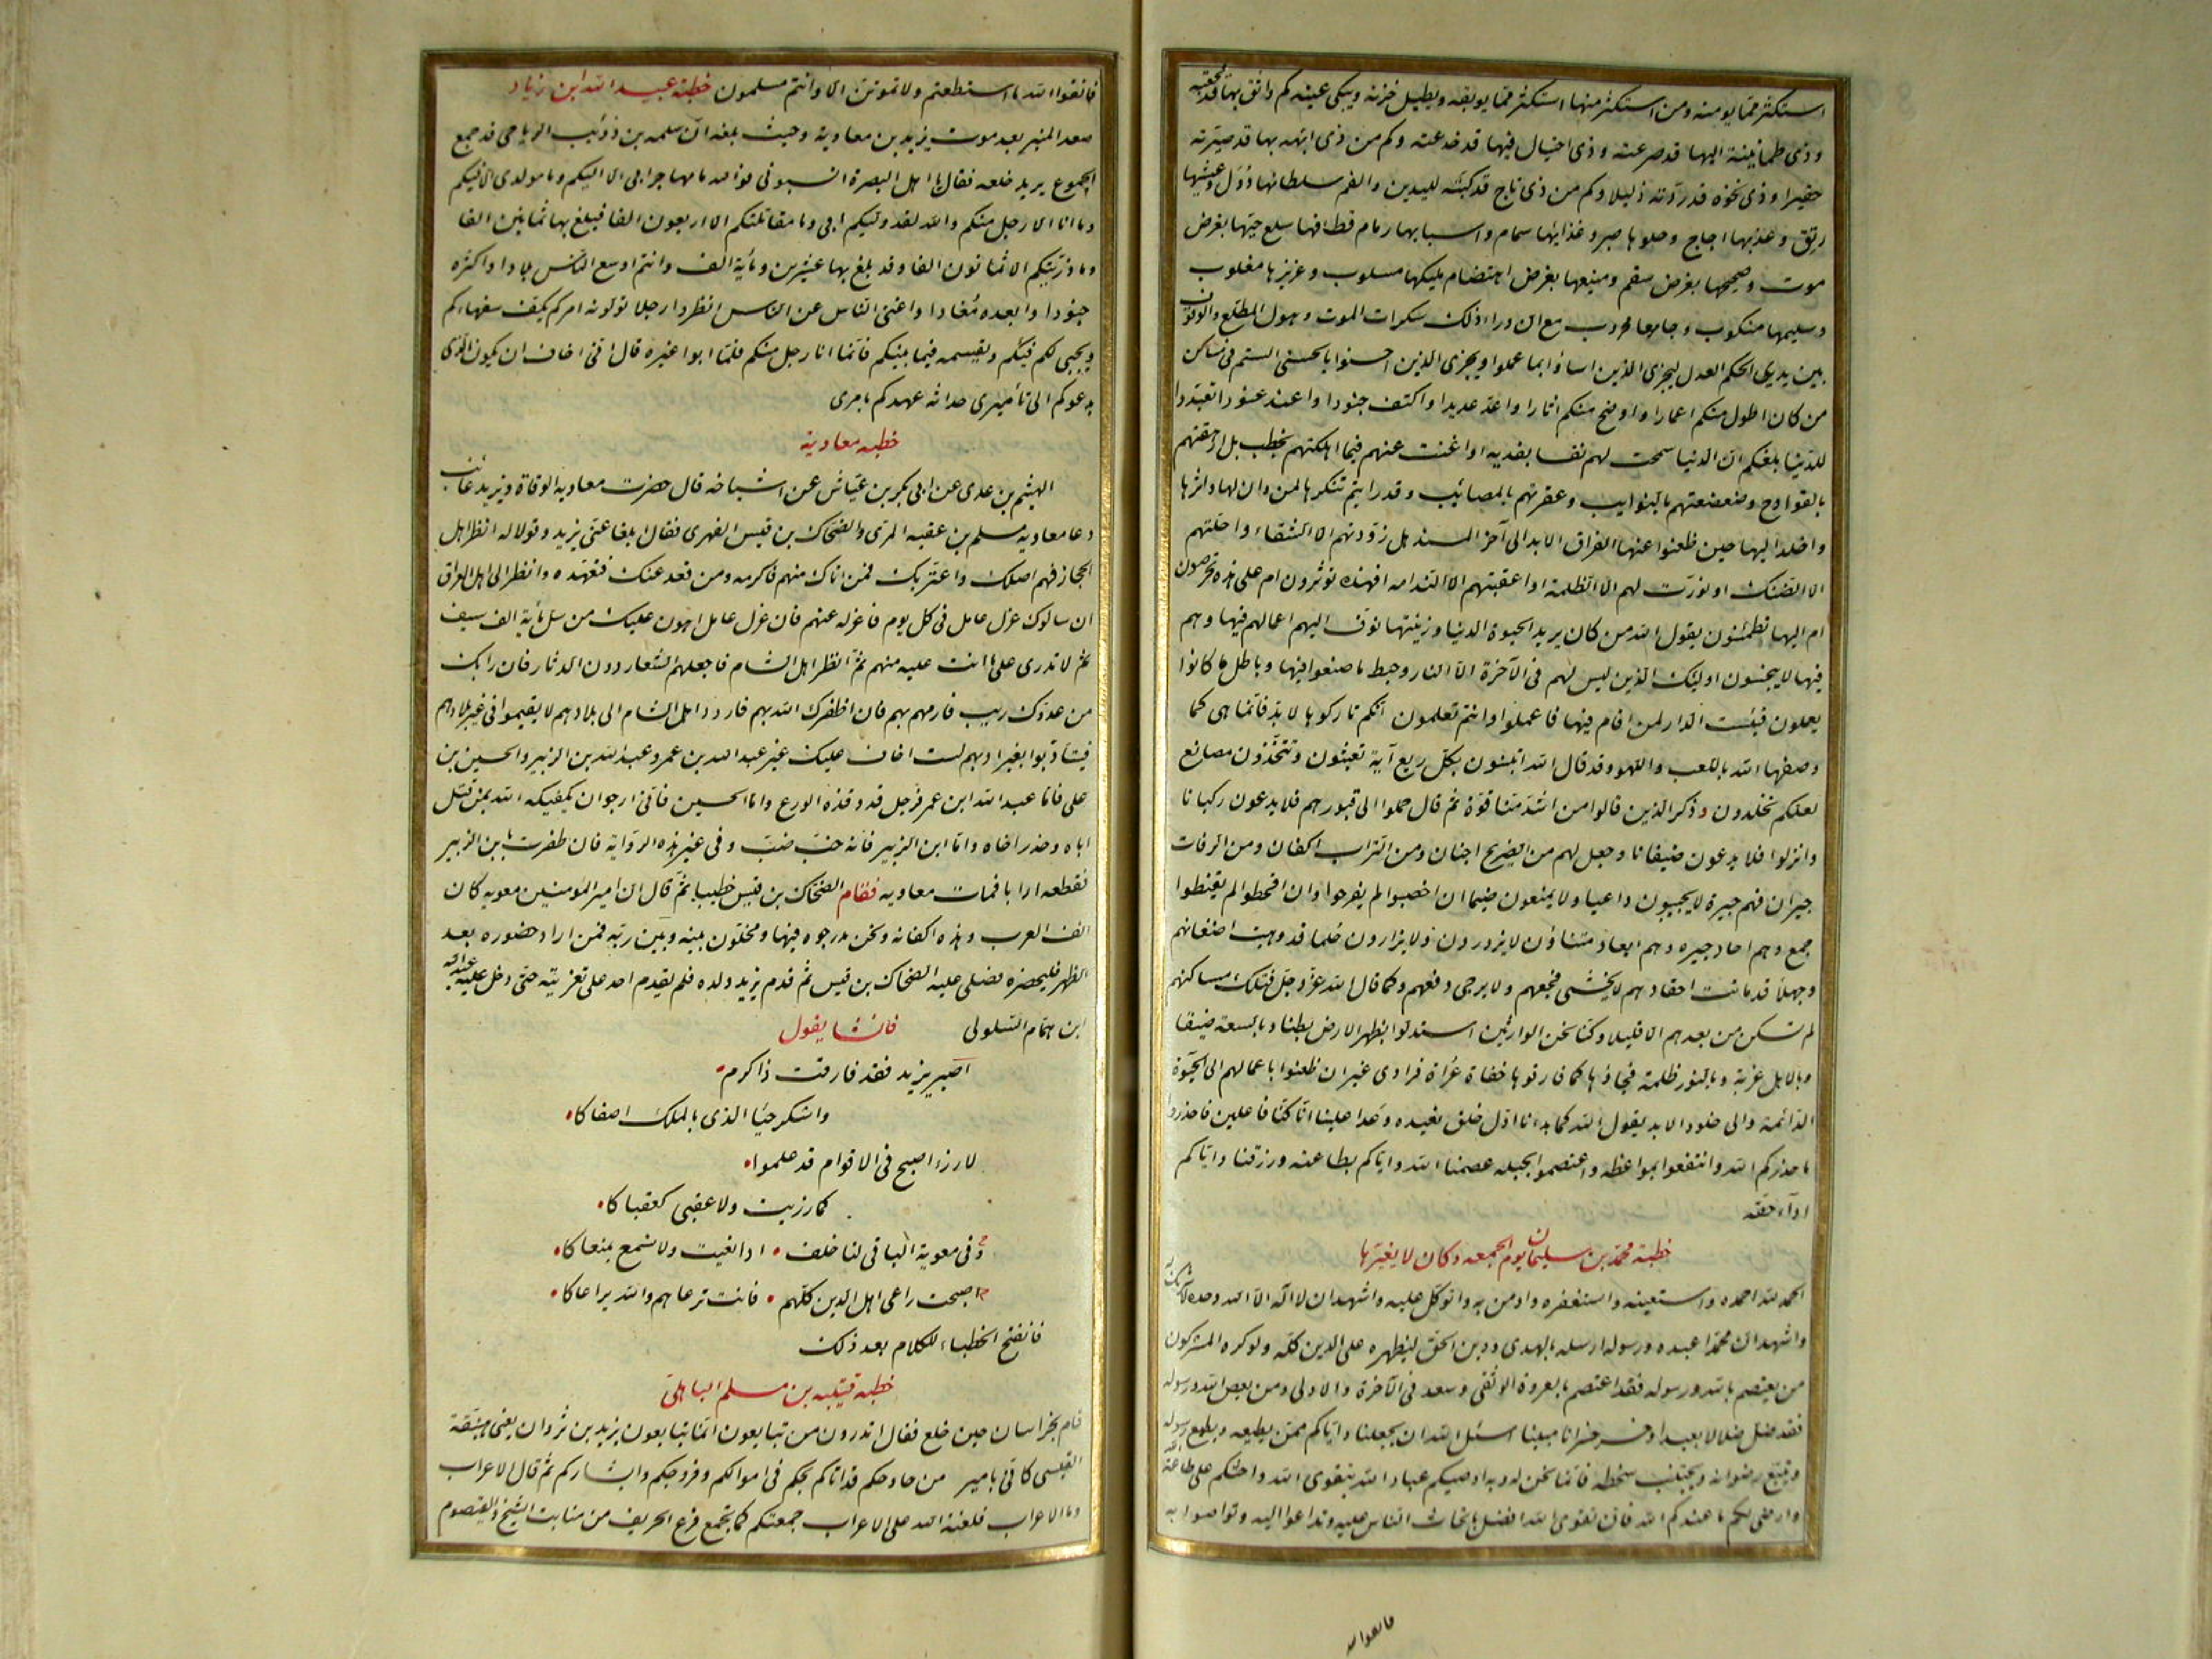 استكثر مما يومنه ومن استكثر منها استكثر مما يوبقه ويطيل حزنه ويبكي عينه كم واثق بها قد فجعته
وذي طمانينة اليها قد صرعته وذي احتيال فيها قد خدعته وكم من ذي ابهه بها قد صيرته
حقيرا وذي نخوه قد ردته ذليلا وكم من ذي تاج قد كبته لليدين والفم سلطانها دُوَل وعيشها
رنق وعذبها اجاج وحلوها صبر وغذايها سمام واسبابها رمام قطافها سلع حيها بعرض
موت وصحيحها بعرض سقم ومنيعها بعرض اهتضام مليكها مسلوب وعزيزها مغلوب
وسليمها منكوب وجامعها محروب مع ان وراء ذلك سكرات الموت وهول المطلع والوقوف
بين يدي الحكم العدل ليجزي الذين اساؤا بما عملوا ويجزي الذين احسنوا بالحسنى الستم في مساكن
من كان اطول منكم اعمارا واوضح منكم اثارا واعد عديدا واكثف جنودا واعند عنودا تعبدوا
للدنيا بلغكم ان الدنيا سمحت لهم نفسا بفديه او اغنت عنهم فيما اهلكتهم بخطب بل ارهقتهم
بالقوادح وضعضعتهم بالنوايب وعقرتهم بالمصائب وقد رايتم تنكرها لمن دان لها واثرها
واخلد اليها حين ظعنوا عنها لفراق الابد الى آخر المسند هل زودتهم الا الشقاء واحلتهم
الا الضنك او نورت لهم الا الظلمة او اعقبتهم الا الندامه افهذه توثرون ام على هذه تحرصون
ام اليها تطمئنون يقول الله من كان يريد الحيوة الدنيا وزينتها نوف اليهم اعمالهم فيها وهم
فيها لا يبخسون اوليك الذين ليس لهم في الآخرة الا النار وحبط ما صنعوا فيها وباطل ما كانوا
يعملون فبئست الدار لمن اقام فيها فاعملوا وانتم تعلمون انكم تاركوها لا بد فانما هي كما
وصفها الله باللعب واللهو وقد قال الله اتبنون بكل ريع آية تعبثون وتتخذون مصانع
لعلكم تخلدون وذكر الذين قالوا من اشد منا قوة ثم قال حملوا الى قبورهم فلا يدعون ركبانا
وانزلوا فلا يدعون ضيفانا وجعل لهم من الضريح اجنان ومن التراب اكفان ومن الرفات
جيران فهم جيرة لا يجيبون داعيا ولا يمنعون ضيما ان اخصبوا لم يفرحوا وان اقحطوا لم يقنطوا
جمع وهم احاد جيره وهم ابعاد متناؤن لا يزورون ولا يزارون حلما قد ذهبت اضغانهم
وجهلا قد ماتت احقادهم لا يخشى فجعهم ولا يرجى دفعهم وكما قال الله عز وجل فتلك مساكنهم
لم تسكن من بعدهم الا قليلا وكنا نحن الوارثين استبدلوا بظهر الارض بطنا وبالسعة ضيقا
وبالاهل غربة وبالنور ظلمة فجاؤها كما فارقوها حفاة عراة فرادى غير ان ظعنوا باعمالهم الى الحيوة
الدائمة والى خلود الابد يقول الله كما بدانا اول خلق نعيده وعدا علينا انا كنا فاعلين فاحذروا
ما حذركم الله وانتفعوا بمواعظه واعتصموا بحبله عصمنا الله واياكم بطاعته ورزقنا واياكم
اداء حقه
خطبة محمد بن سليمان يوم الجمعه وكان لا يغيرها
الحمد لله احمده واستعينه واستغفره واومن به واتوكل عليه واشهد ان لا اله الا الله وحده لا شريك له
واشهد ان محمدا عبده ورسوله ارسله بالهدى ودين الحق ليظهره على الدين كله ولو كره المشركون
من يعتصم بالله ورسوله فقد اعتصم بالعروة الوثقى وسعد في الآخرة والاولى ومن يعص الله ورسوله
فقد ضل ضلالا بعيدا وخسر خسرانا مبينا اسئل الله ان يجعلنا واياكم ممن يطيعه ويطيع رسوله
ويتبع رضوانه ويجتنب سخطه فانما نحن له وبه اوصيكم عباد الله بتقوى الله واحثكم على طاعة الله
وارضى لكم ما عند كم الله فان تقوى الله افضل ما تحاث الناس عليه وتداعوا اليه وتواصوا به
فاتقوا الله
فاتقوا الله ما استطعتم ولا تموتن الا وانتم مسلمون خطبة عبيد الله ابن زياد
صعد المنبر بعد موت يزيد بن معاوية وحيث بلغه ان سلمه بن ذؤيب الرياحي قد جمع
الجموع يريد خلعه فقال يا اهل البصرة انسبوني فوالله ما مهاجر ابي الا اليكم وما مولدي الا فيكم
وما انا الا رجل منكم والله لقد وليكم ابي وما مقاتلتكم الا اربعون الفا فبلغ بها ثمانين الفا
وما ذريتكم الا ثمانون الفا وقد بلغ بها عشرين ومأية الف وانتم اوسع الناس بلادا واكثره
جنودا وابعده مُقادا واغنى الناس عن الناس انظروا رجلا تولونه امركم يكف سفهاءكم
ويجبى لكم فيئكم ويقسمه فيما بينكم فانما انا رجل منكم فلما ابوا غيره قال انى اخاف ان يكون الذي
يدعوكم الى تأميري حداثه عهدكم بامري
خطبه معاوية
الهيثم بن عدي عن ابي بكر بن عياش عن اشياخه قال حضرت معاويه الوفاة ويزيد غائب
دعا معاويه مسلم بن عقبه المرى والضحاك بن قيس الفهري فقال ابلغا عنى يزيد وقولا له انظر اهل
الحجاز فهم اصلك وعترتك فمن اتاك منهم فاكرمه ومن قعد عنك فتعهده وانظر الى اهل العراق
ان سالوك عزل عامل في كل يوم فاعزله عنهم فان عزل عامل اهون عليك من سل مأية الف سيف
ثم لا تدري على ما انت عليه منهم ثم انظر اهل الشام فاجعلهم الشعار دون الدثار فان رابك
من عدوك ريب فارمهم بهم فان اظفرك الله بهم فاردد اهل الشام الى بلادهم لا يقيموا في غير بلادهم
فيتادبوا بغير ادبهم لست اخاف عليك غير عبد الله بن عمر وعبد الله بن الزبير والحسين بن
علي فاما عبد الله ابن عمر فرجل قد وقذه الورع واما الحسين فانى ارجو ان يكفيكه الله بمن قتل
اباه وخذر اخاه واما ابن الزبير فانه خب ضب وفي غير هذه الرواية فان ظفرت بابن الزبير
فقطعه اربا فمات معاويه فقام الضحاك بن قيس خطيبا ثم قال ان امير المؤمنين معويه كان
الف العرب وهذه اكفانه ونحن مدرجوه فيها ومخلون بينه وبين ربه فمن اراد حضوره بعد
الظهر فليحضره فصلى عليه الضحاك بن قيس ثم قدم يزيد ولده فلم يقدم احد على تعزيته حتى دخل عليه عبد الله
ابن همام السلولى فانشا يقول
اصبر يزيد فقد فارقت ذا كرم
واشكر حبا الذى بالملك اصفاكا
لا رزء اصبح في الاقوام قد علموا
كما رزيت ولا عقبى كعقباكا
وفى معوية الباقى لنا خلف اذا نعيت ولا نسمع بمنعاكا
اصبحت راعى اهل الدين كلهم فانت ترعاهم والله يرعاكا
فانفتح الخطباء للكلام بعد ذلك
خطبه قتيبه بن مسلم الباهلي
قام بخراسان حين خلع فقال اتدرون من تبايعون انما تبايعون يزيد بن ثروان يعنى هبنقة
القيسى كانى بامير من حاء وحكم قد اتاكم يحكم في اموالكم وفروجكم وابشاركم ثم قال الاعراب
وما الاعراب فلعنة الله على الاعراب جمعتكم كما يجمع قزع الخريف من منابت الشيح والقيصوم